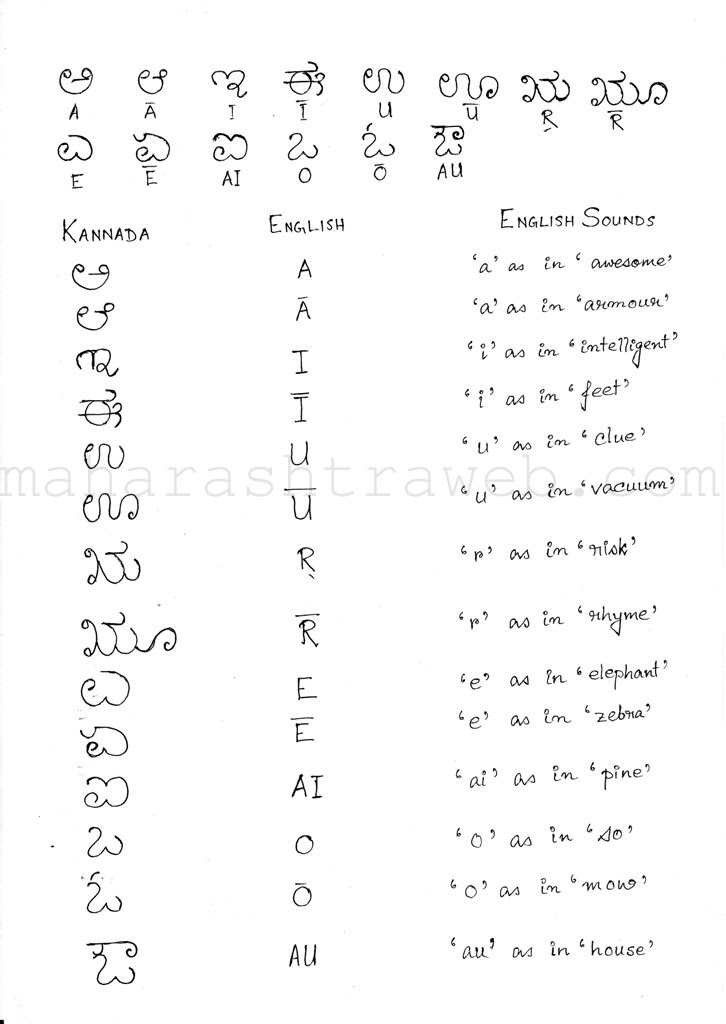 ಅ ಆ ಇ ಈ ಉ ಊ ಋ ೠ
A Ā I Ī U Ū Ṛ R̄
ಎ ಏ ಐ ಒ ಓ ಔ
E Ē AI O Ō AU
KANNADA ENGLISH ENGLISH SOUNDS
ಅ A 'a' as in 'awesome'
ಆ Ā 'a' as in 'armour'
ಇ I 'i' as in 'intelligent'
ಈ Ī 'i' as in 'feet'
ಉ U 'u' as in 'clue'
maharashtraweb.com
ಊ Ū 'u' as in 'vacuum'
ಋ Ṛ 'r' as in 'risk'
ೠ R̄ 'r' as in 'rhyme'
ಎ E 'e' as in 'elephant'
ಏ Ē 'e' as in 'zebra'
ಐ AI 'ai' as in 'pine'
ಒ O 'o' as in 'so'
ಓ Ō 'o' as in 'mow'
ಔ AU 'au' as in 'house'